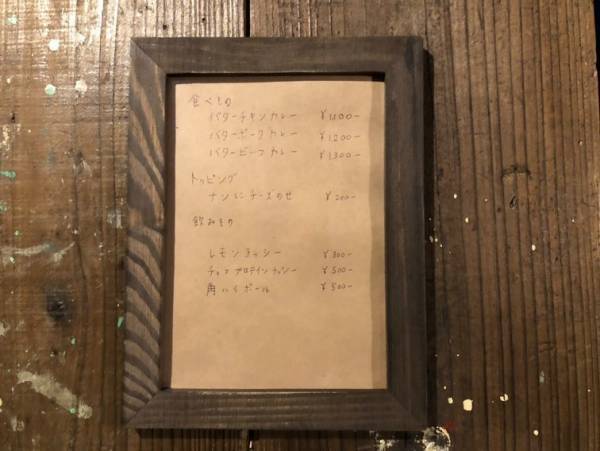 食べもの
バターチキンカレー ¥1100-
バターポークカレー ¥1200-
バタービーフカレー ¥1300-
トッピング
ナンにチーズのせ ¥200-
飲みもの
レモンラッシー ¥300-
チョコプロテインラッシー ¥500-
角ハイボール ¥500-